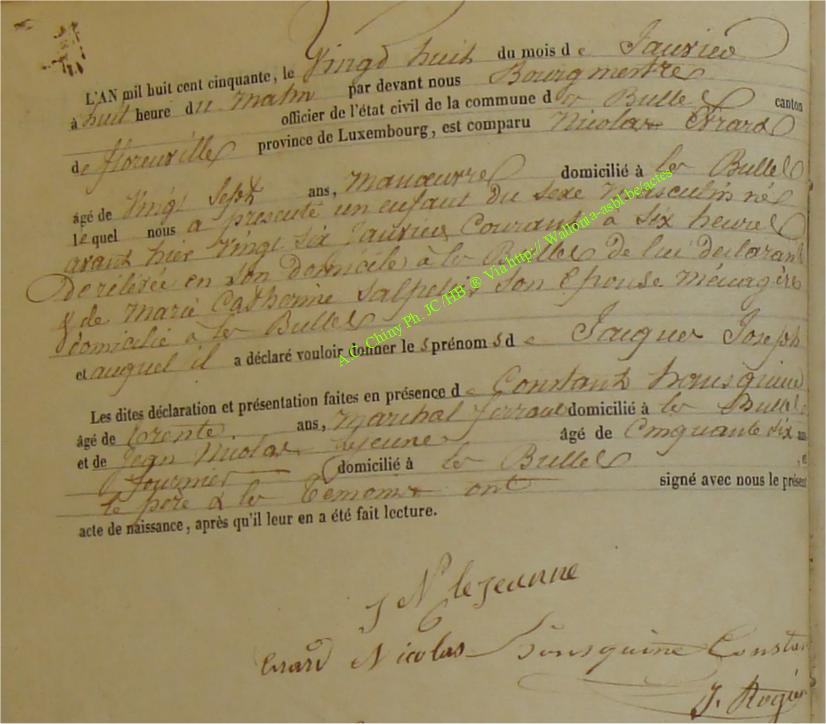 L'AN mil huit cent cinquante, le Vingt huit du mois d e Janvier
à huit heure du matin par devant nous Bourgmestre
officier de l'état civil de la commune d es Bulles canton
de florenville province de Luxembourg, est comparu Nicolas Evrard
âgé de Vingt Sept ans, manœuvre domicilié à les Bulles
lequel nous a presenté un enfant du sexe masculin né
avant hier Vingt six Janvier Courant à six heures
en son domicile à les Bulles de lui declarant
& de Marie Catherine Salpeter son Epouse Ménagère
domicilié à les Bulles
et auquel il a déclaré vouloir donner les prénoms d e Jacques Joseph
Les dites déclaration et présentation faites en présence d e Constant housquine
âgé de trente ans, Marchal ferrant domicilié à les Bulles
et de Jean Nicolas Lejeune âgé de Cinquante six ans
domicilié à les Bulles, et
le père & les temoins ont signé avec nous le présent
acte de naissance, après qu'il leur en a été fait lecture.
J N leJeunne
Evrard Nicolas housquine Constan
J. Rogier
A.C. Chiny Ph. JC /HB ® Via http:// Wallonia-asbl.be/actes